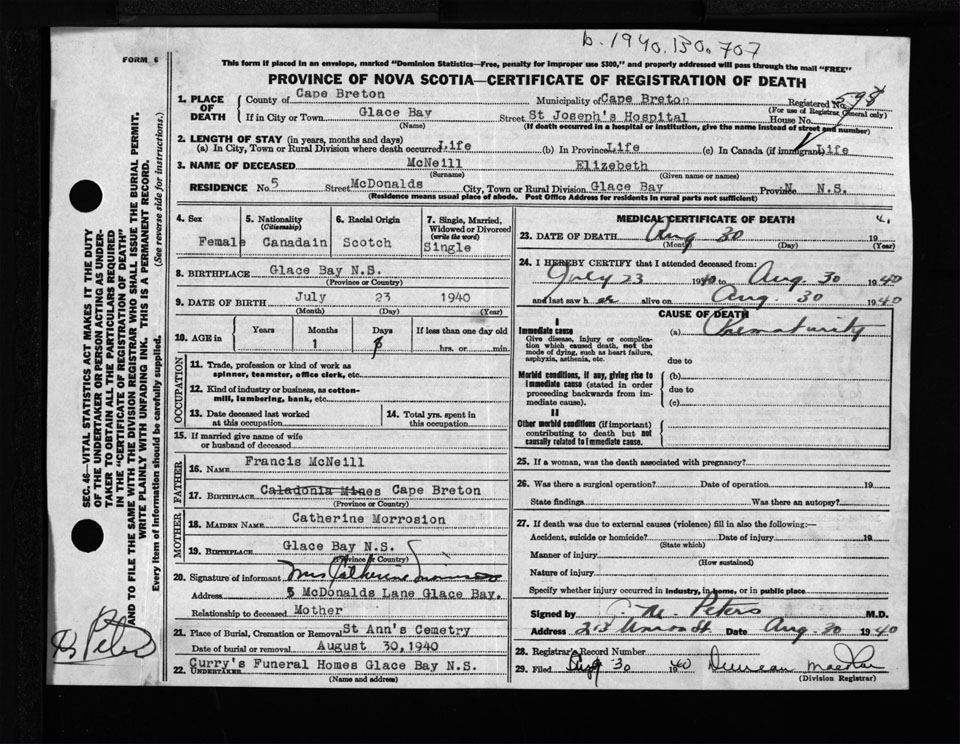 b. 1940.130.707
FORM 6
This form if placed in an envelope, marked "Dominion Statistics—Free, penalty for improper use $300," and properly addressed will pass through the mail "FREE"
PROVINCE OF NOVA SCOTIA—CERTIFICATE OF REGISTRATION OF DEATH
1. PLACE OF DEATH
County of Cape Breton Municipality of Cape Breton Registered No. 598
(For use of Registrar General only)
If in City or Town Glace Bay Street St Joseph's Hospital House No.
(Name) (If death occurred in a hospital or institution, give the name instead of street and number)
2. LENGTH OF STAY (in years, months and days)
(a) In City, Town or Rural Division where death occurred Life (b) In Province Life (c) In Canada (if immigrant) Life
3. NAME OF DECEASED McNeill Elizebeth
(Surname) (Given name or names)
RESIDENCE No. 5 Street McDonalds City, Town or Rural Division Glace Bay Province N. N.S.
(Residence means usual place of abode. Post Office Address for residents in rural parts not sufficient)
4. Sex
Female
5. Nationality
(Citizenship)
Canadain
6. Racial Origin
Scotch
7. Single, Married,
Widowed or Divorced
(write the word)
Single
8. BIRTHPLACE Glace Bay N.S.
(Province or Country)
9. DATE OF BIRTH July 23 1940
(Month) (Day) (Year)
10. AGE in
Years Months Days If less than one day old
1 hrs. or min.
OCCUPATION
11. Trade, profession or kind of work as
spinner, teamster, office clerk, etc.
12. Kind of industry or business, as cotton-
mill, lumbering, bank, etc.
13. Date deceased last worked
at this occupation
14. Total yrs. spent in
this occupation
15. If married give name of wife
or husband of deceased
FATHER
16. NAME Francis McNeill
17. BIRTHPLACE Caladonia Mines Cape Breton
(Province or Country)
MOTHER
18. MAIDEN NAME Catherine Morrosion
19. BIRTHPLACE Glace Bay N.S.
(Province or Country)
20. Signature of informant Mrs Catherine
Address 5 McDonalds Lane Glace Bay.
Relationship to deceased Mother
21. Place of Burial, Cremation or Removal St Ann's Cemetry
Date of burial or removal August 30,1940
22. UNDERTAKER Curry's Funeral Homes Glace Bay N.S.
(Name and address)
MEDICAL CERTIFICATE OF DEATH
23. DATE OF DEATH Aug 30 19
(Month) (Day) (Year)
24. I HEREBY CERTIFY that I attended deceased from:
July 23 1940 to Aug. 30 1940
and last saw her alive on Aug. 30 1940
CAUSE OF DEATH
I
Immediate cause
Give disease, injury or complica-
tion which caused death, not the
mode of dying, such as heart failure,
asphyxia, asthenia, etc.
(a) Prematurity
due to
Morbid conditions, if any, giving rise to
immediate cause (stated in order
proceeding backwards from im-
mediate cause).
(b)
due to
(c)
II
Other morbid conditions (if important)
contributing to death but not
causally related to immediate cause.
25. If a woman, was the death associated with pregnancy?
26. Was there a surgical operation? Date of operation 19
State findings Was there an autopsy?
27. If death was due to external causes (violence) fill in also the following:—
Accident, suicide or homicide? Date of injury 19
(State which)
Manner of injury
(How sustained)
Nature of injury
Specify whether injury occurred in industry, in home, or in public place
Signed by M. Peters M.D.
Address 213 Union St Date Aug 30 1940
28. Registrar's Record Number
29. Filed Aug 30 1940 Duncan
(Division Registrar)
SEC. 46—VITAL STATISTICS ACT MAKES IT THE DUTY
OF THE UNDERTAKER OR PERSON ACTING AS UNDER-
TAKER TO OBTAIN ALL THE PARTICULARS REQUIRED
IN THE "CERTIFICATE OF REGISTRATION OF DEATH"
AND TO FILE THE SAME WITH THE DIVISION REGISTRAR WHO SHALL ISSUE THE BURIAL PERMIT.
WRITE PLAINLY WITH UNFADING INK. THIS IS A PERMANENT RECORD.
Every item of information should be carefully supplied. (See reverse side for instructions.)
Peters